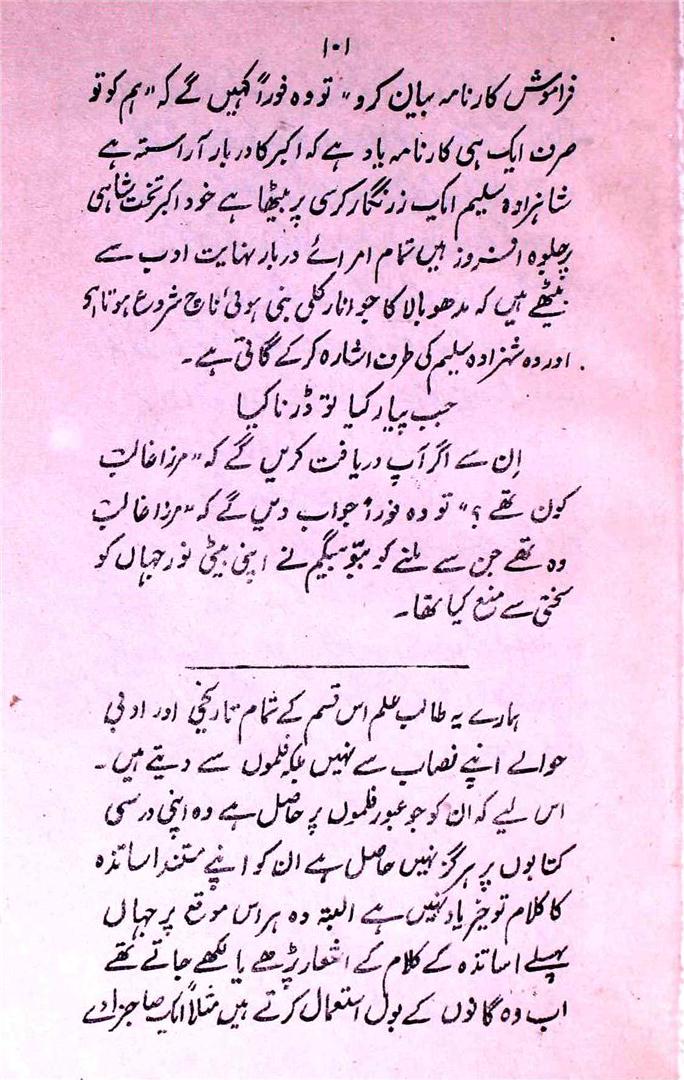 ۱۰۱
فراموش کارنامہ بیان کرو" تو وہ فوراً کہیں گے کہ "ہم کو تو
صرف ایک ہی کارنامہ یاد ہے کہ اکبر کا دربار آراستہ ہے
شاہزادہ سلیم ایک زرنگار کرسی پر بیٹھا ہے خود اکبر تخت شاہی
پر جلوہ افروز ہیں تمام امرائے دربار نہایت ادب سے
بیٹھے ہیں کہ مدھو بالا کا جو انارکلی بنی ہوئی ناچ شروع ہوتا ہے
اور وہ شہزادہ سلیم کی طرف اشارہ کر کے گاتی ہے۔
جب پیار کیا تو ڈرنا کیا
اِن سے اگر آپ دریافت کریں گے کہ "مرزا غالبؔ
کون تھے؟" تو وہ فوراً جواب دیں گے کہ "مرزا غالبؔ
وہ تھے جن سے ملنے کو ببّو بیگم نے اپنی بیٹی نور جہاں کو
سختی سے منع کیا تھا۔
ہمارے یہ طالب علم اس قسم کے تمام تاریخی اور ادبی
حوالے اپنے نصاب سے نہیں بلکہ فلموں سے دیتے ہیں۔
اس لیے کہ ان کو جو عبور فلموں پر حاصل ہے وہ اپنی درسی
کتابوں پر ہرگز نہیں حاصل ہے ان کو اپنے مستند اساتذہ
کا کلام تو خیر یاد نہیں ہے البتہ وہ ہر اس موقع پر جہاں
پہلے اساتذہ کے کلام کے اشعار پڑھے یا لکھے جاتے تھے
اب وہ گانوں کے بول استعمال کرتے ہیں مثلاً ایک صاحبزادے